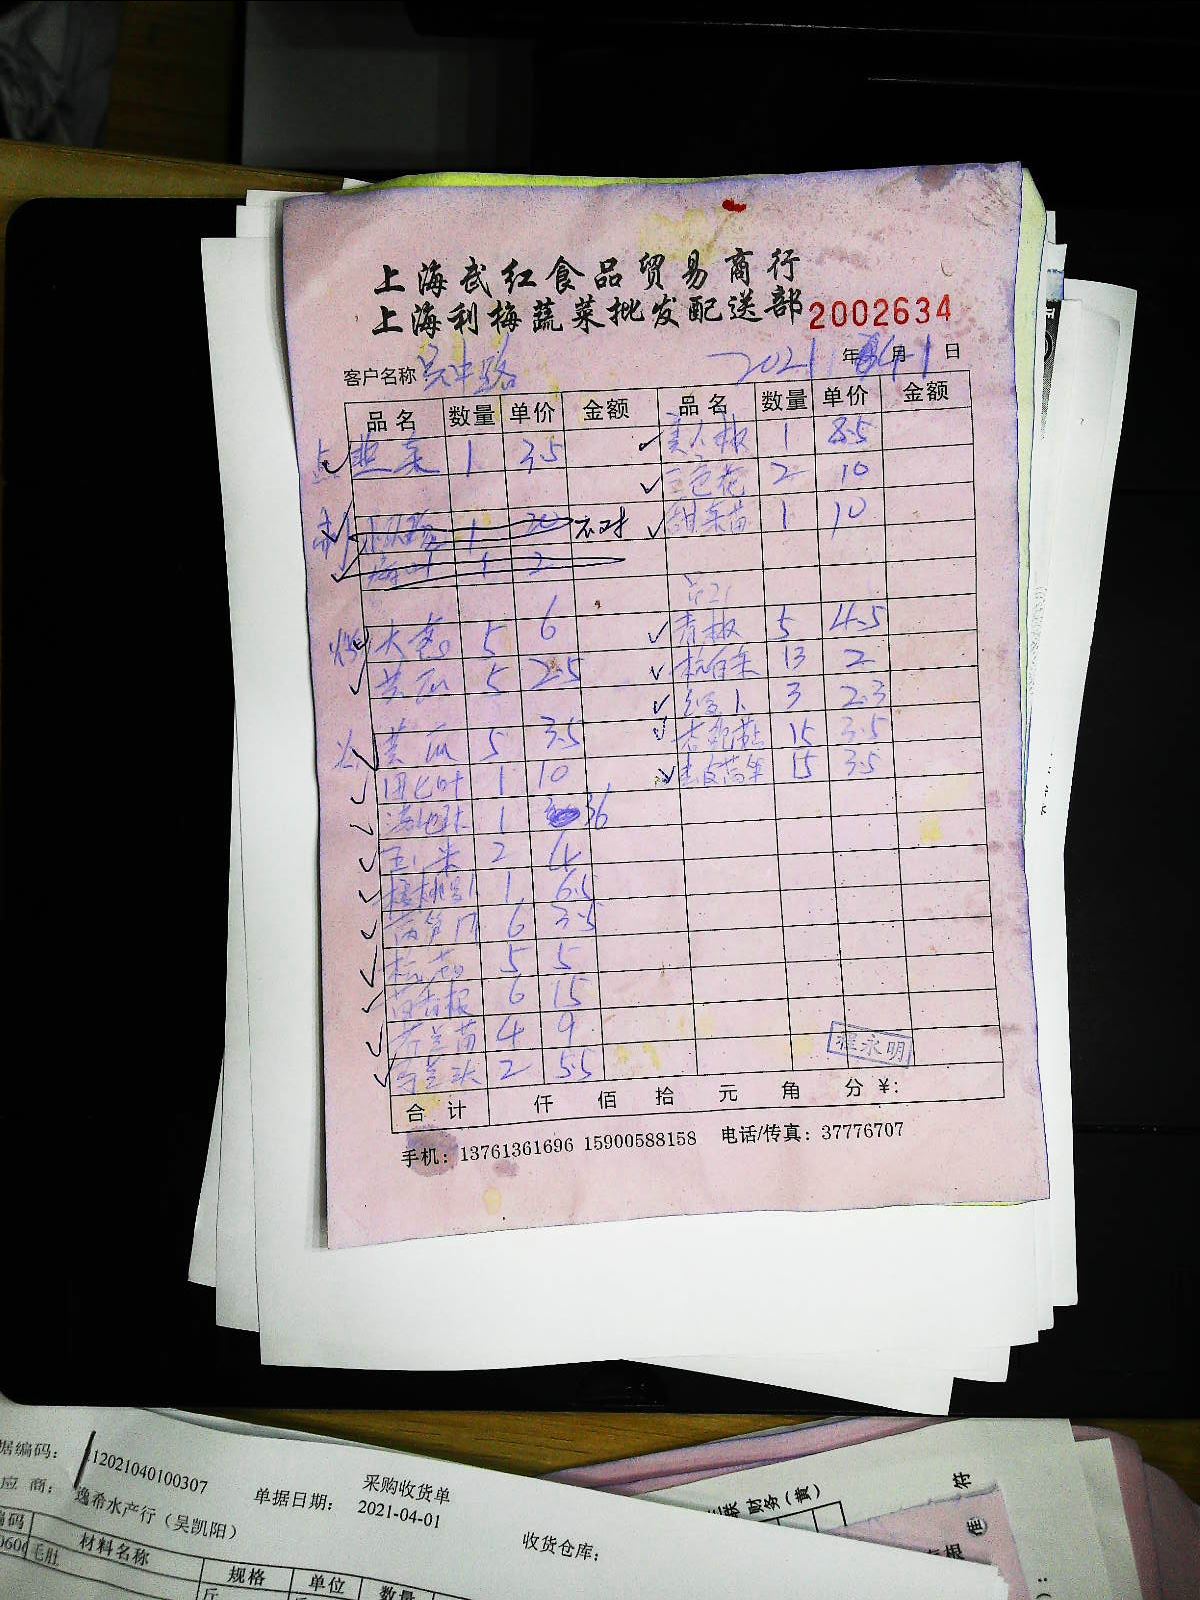 上海武红食品贸易商行
上海利梅蔬菜批发配送部 2002634
客户名称 吴中路 2021 年 4 月 1 日
品名 数量 单价 金额 品名 数量 单价 金额
点 韭菜 1 3.5 美人椒 1 8.5
三色花 2 10
1 20 不对 甜菜苗 1 10
1 2
大葱 5 6 青椒 5 4.5
黄瓜 5 2.5 杭白菜 13 2
3 2.3
黄瓜 5 3.5 杏鲍菇 15 3.5
1 10 15 3.5
1 36
玉米 2 4
樱桃 1 6.5
莴笋 6 3.5
杭茄 5 5
茴香根 6 15
芥兰苗 4 9
芥兰头 2 5.5
程永明
合计 仟 佰 拾 元 角 分 ¥:
手机：13761361696 15900588158 电话/传真：37776707
据编码： 12021040100307
采购收货单
应商： 逸希水产行（吴凯阳）
单据日期： 2021-04-01
收货仓库：
编码 材料名称 规格 单位 数量
毛肚 斤
联 财务（黄）